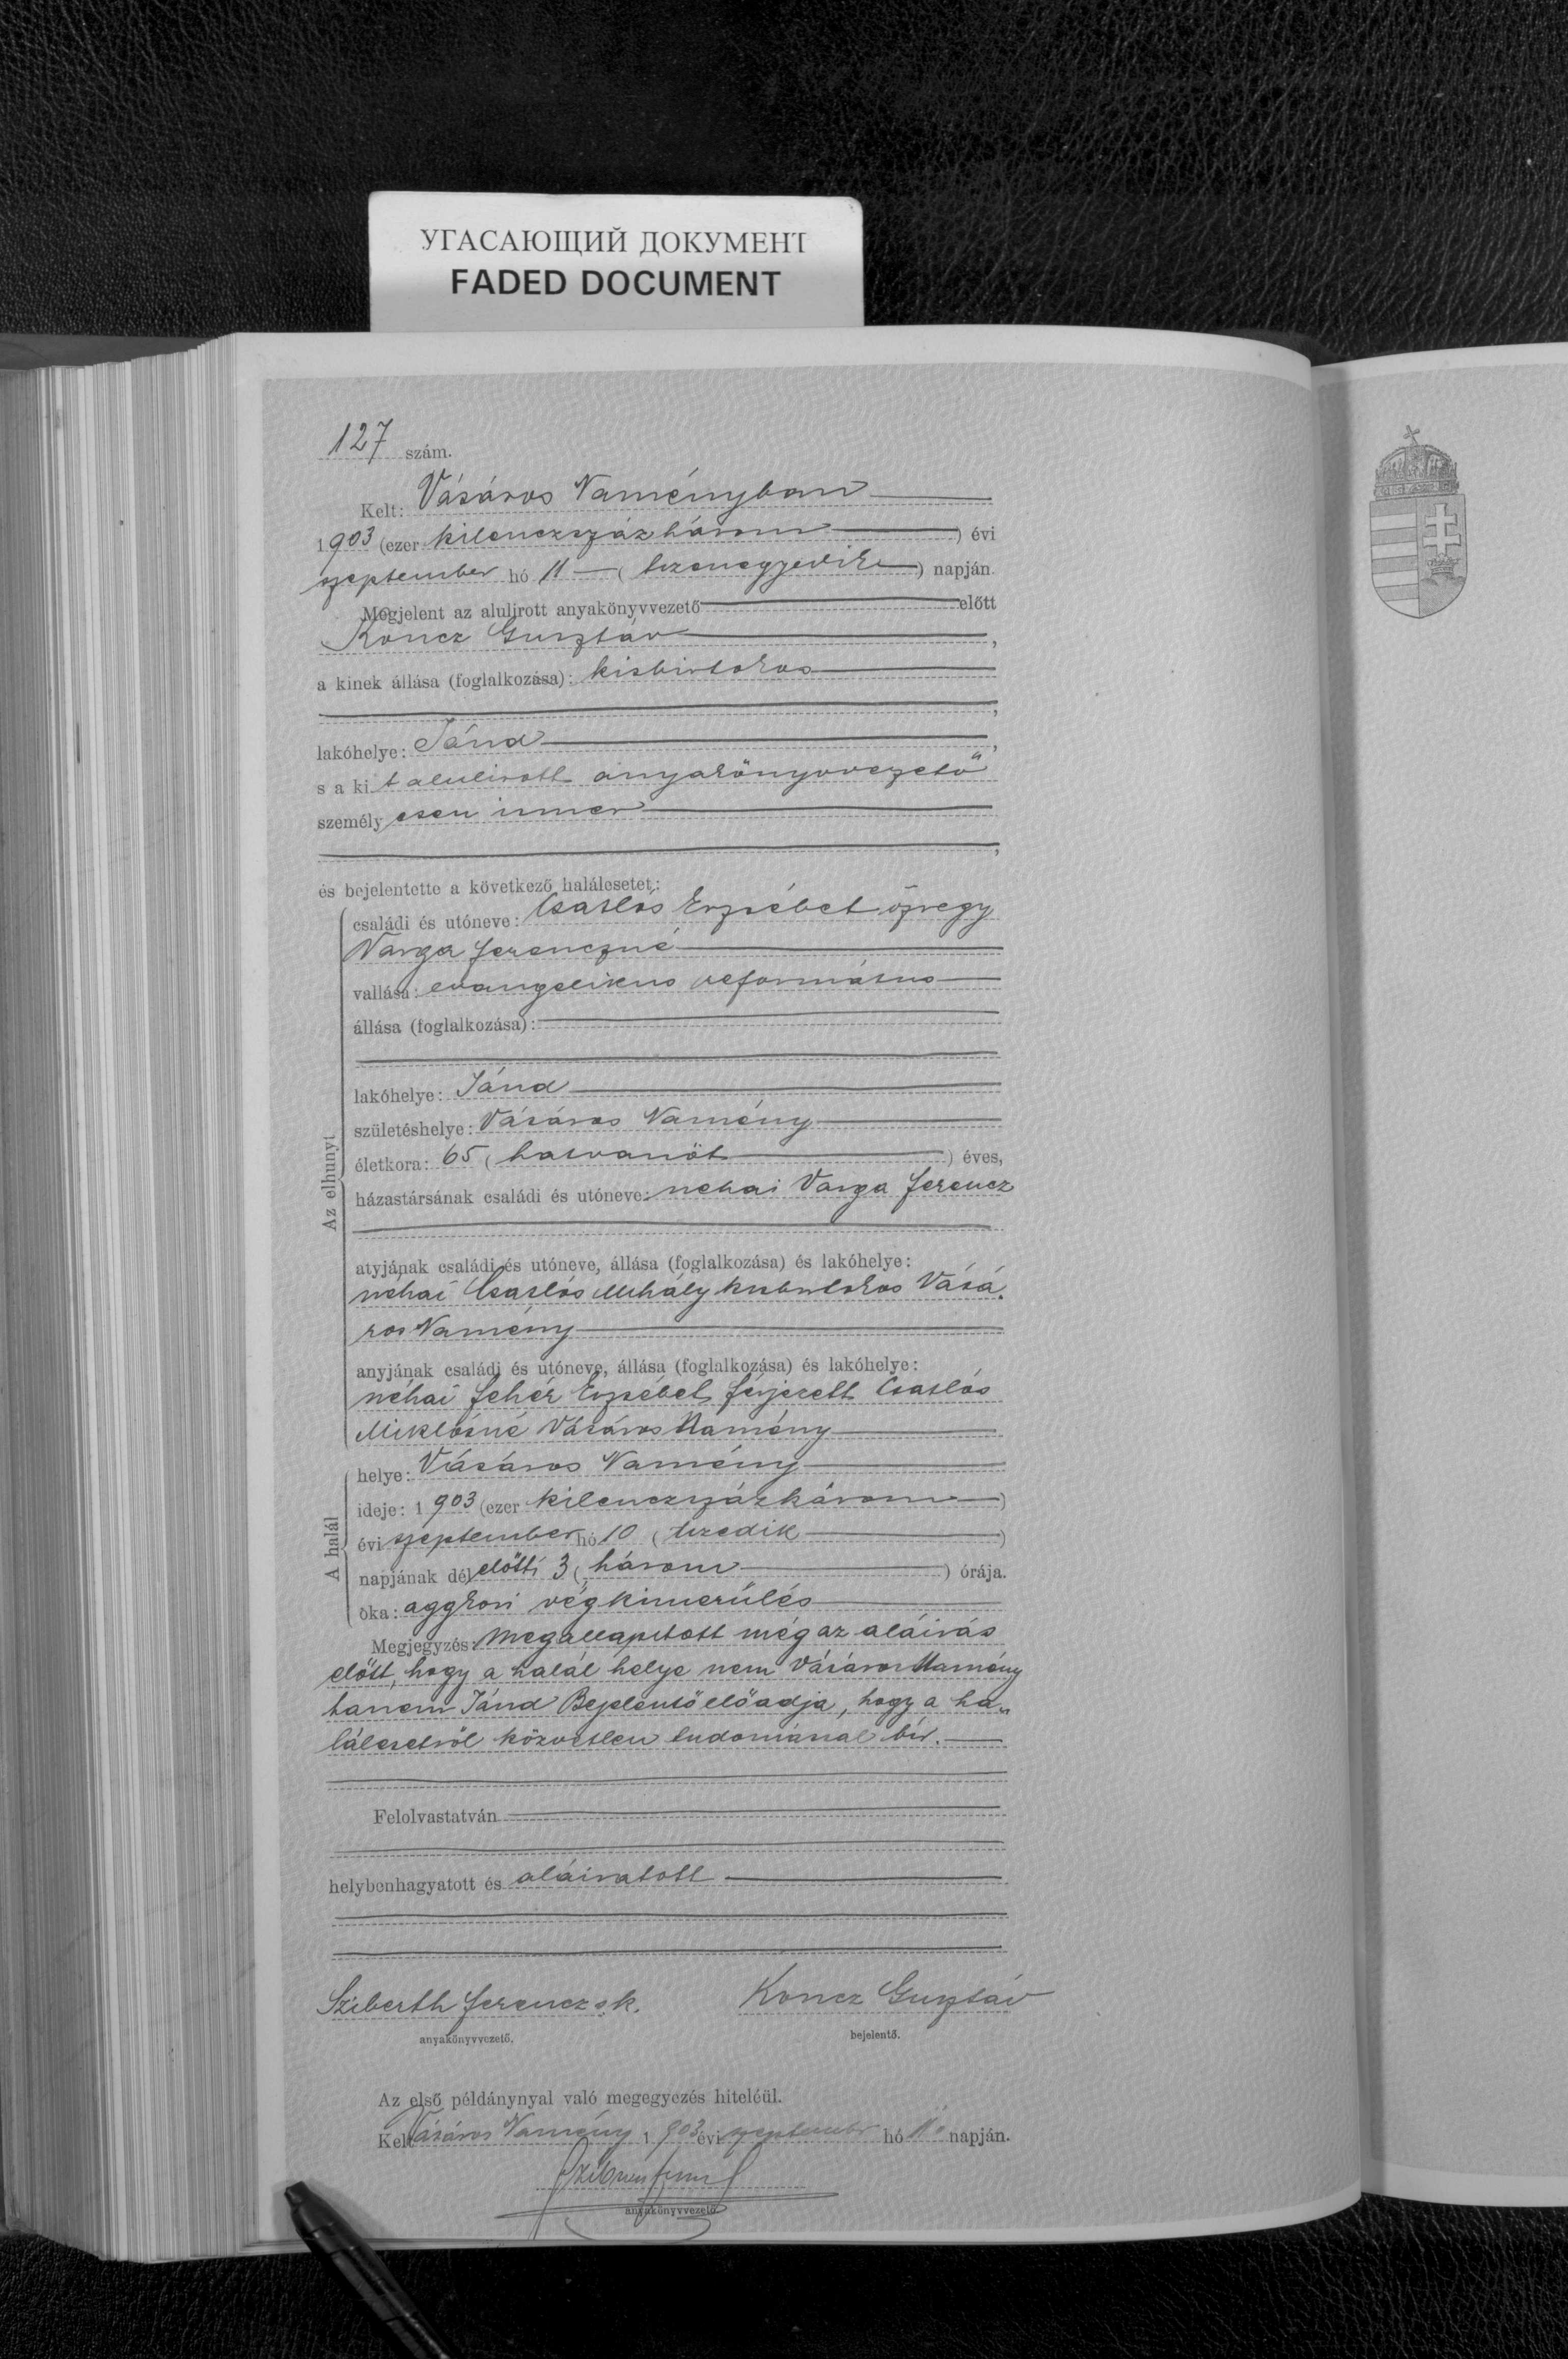 УГАСАЮЩИЙ ДОКУМЕНТ
FADED DOCUMENT
127 szám.
Kelt: Vásáros Naményban
1903 (ezer kilenczszázhárom) évi
szeptember hó 11 (tizenegyedike) napján.
Megjelent az alulirott anyakönyvvezető előtt
Koncz Gusztáv,
a kinek állása (foglalkozása): kisbirtokos
,
lakóhelye: Jánd,
s a kit alulirott anyakönyvvezető
személyesen ismer
,
és bejelentette a következő halálesetet:
Az elhunyt
családi és utóneve: Csatlós Erzsébet özvegy
Varga Ferenczné
vallása: evangelikus református
állása (foglalkozása):
lakóhelye: Jánd
születéshelye: Vásáros Namény
életkora: 65 (hatvanöt) éves,
házastársának családi és utóneve: néhai Varga Ferencz
atyjának családi és utóneve, állása (foglalkozása) és lakóhelye:
néhai Csatlós Mihály kisbirtokos Vásá-
ros Namény
anyjának családi és utóneve, állása (foglalkozása) és lakóhelye:
néhai Fehér Erzsébet férjezett Csatlós
Miklósné Vásáros Namény
A halál
helye: Vásáros Namény
ideje: 1903 (ezer kilenczszázhárom)
évi szeptember hó 10 (tizedik)
napjának délelőtti 3 (három) órája.
oka: aggkori végkimerülés
Megjegyzés: Megállapitott még az aláirás
előtt, hogy a halál helye nem Vásáros Namény
hanem Jánd Bejelentő előadja, hogy a ha-
lálesetről közvetlen tudomással bír.
Felolvastatván
helybenhagyatott és aláiratott
Sziberth Ferencz s.k. Koncz Gusztáv
anyakönyvvezető. bejelentő.
Az első példánynyal való megegyezés hiteléül.
Kelt Vásáros Namény 1903 évi szeptember hó 11 napján.
anyakönyvvezető